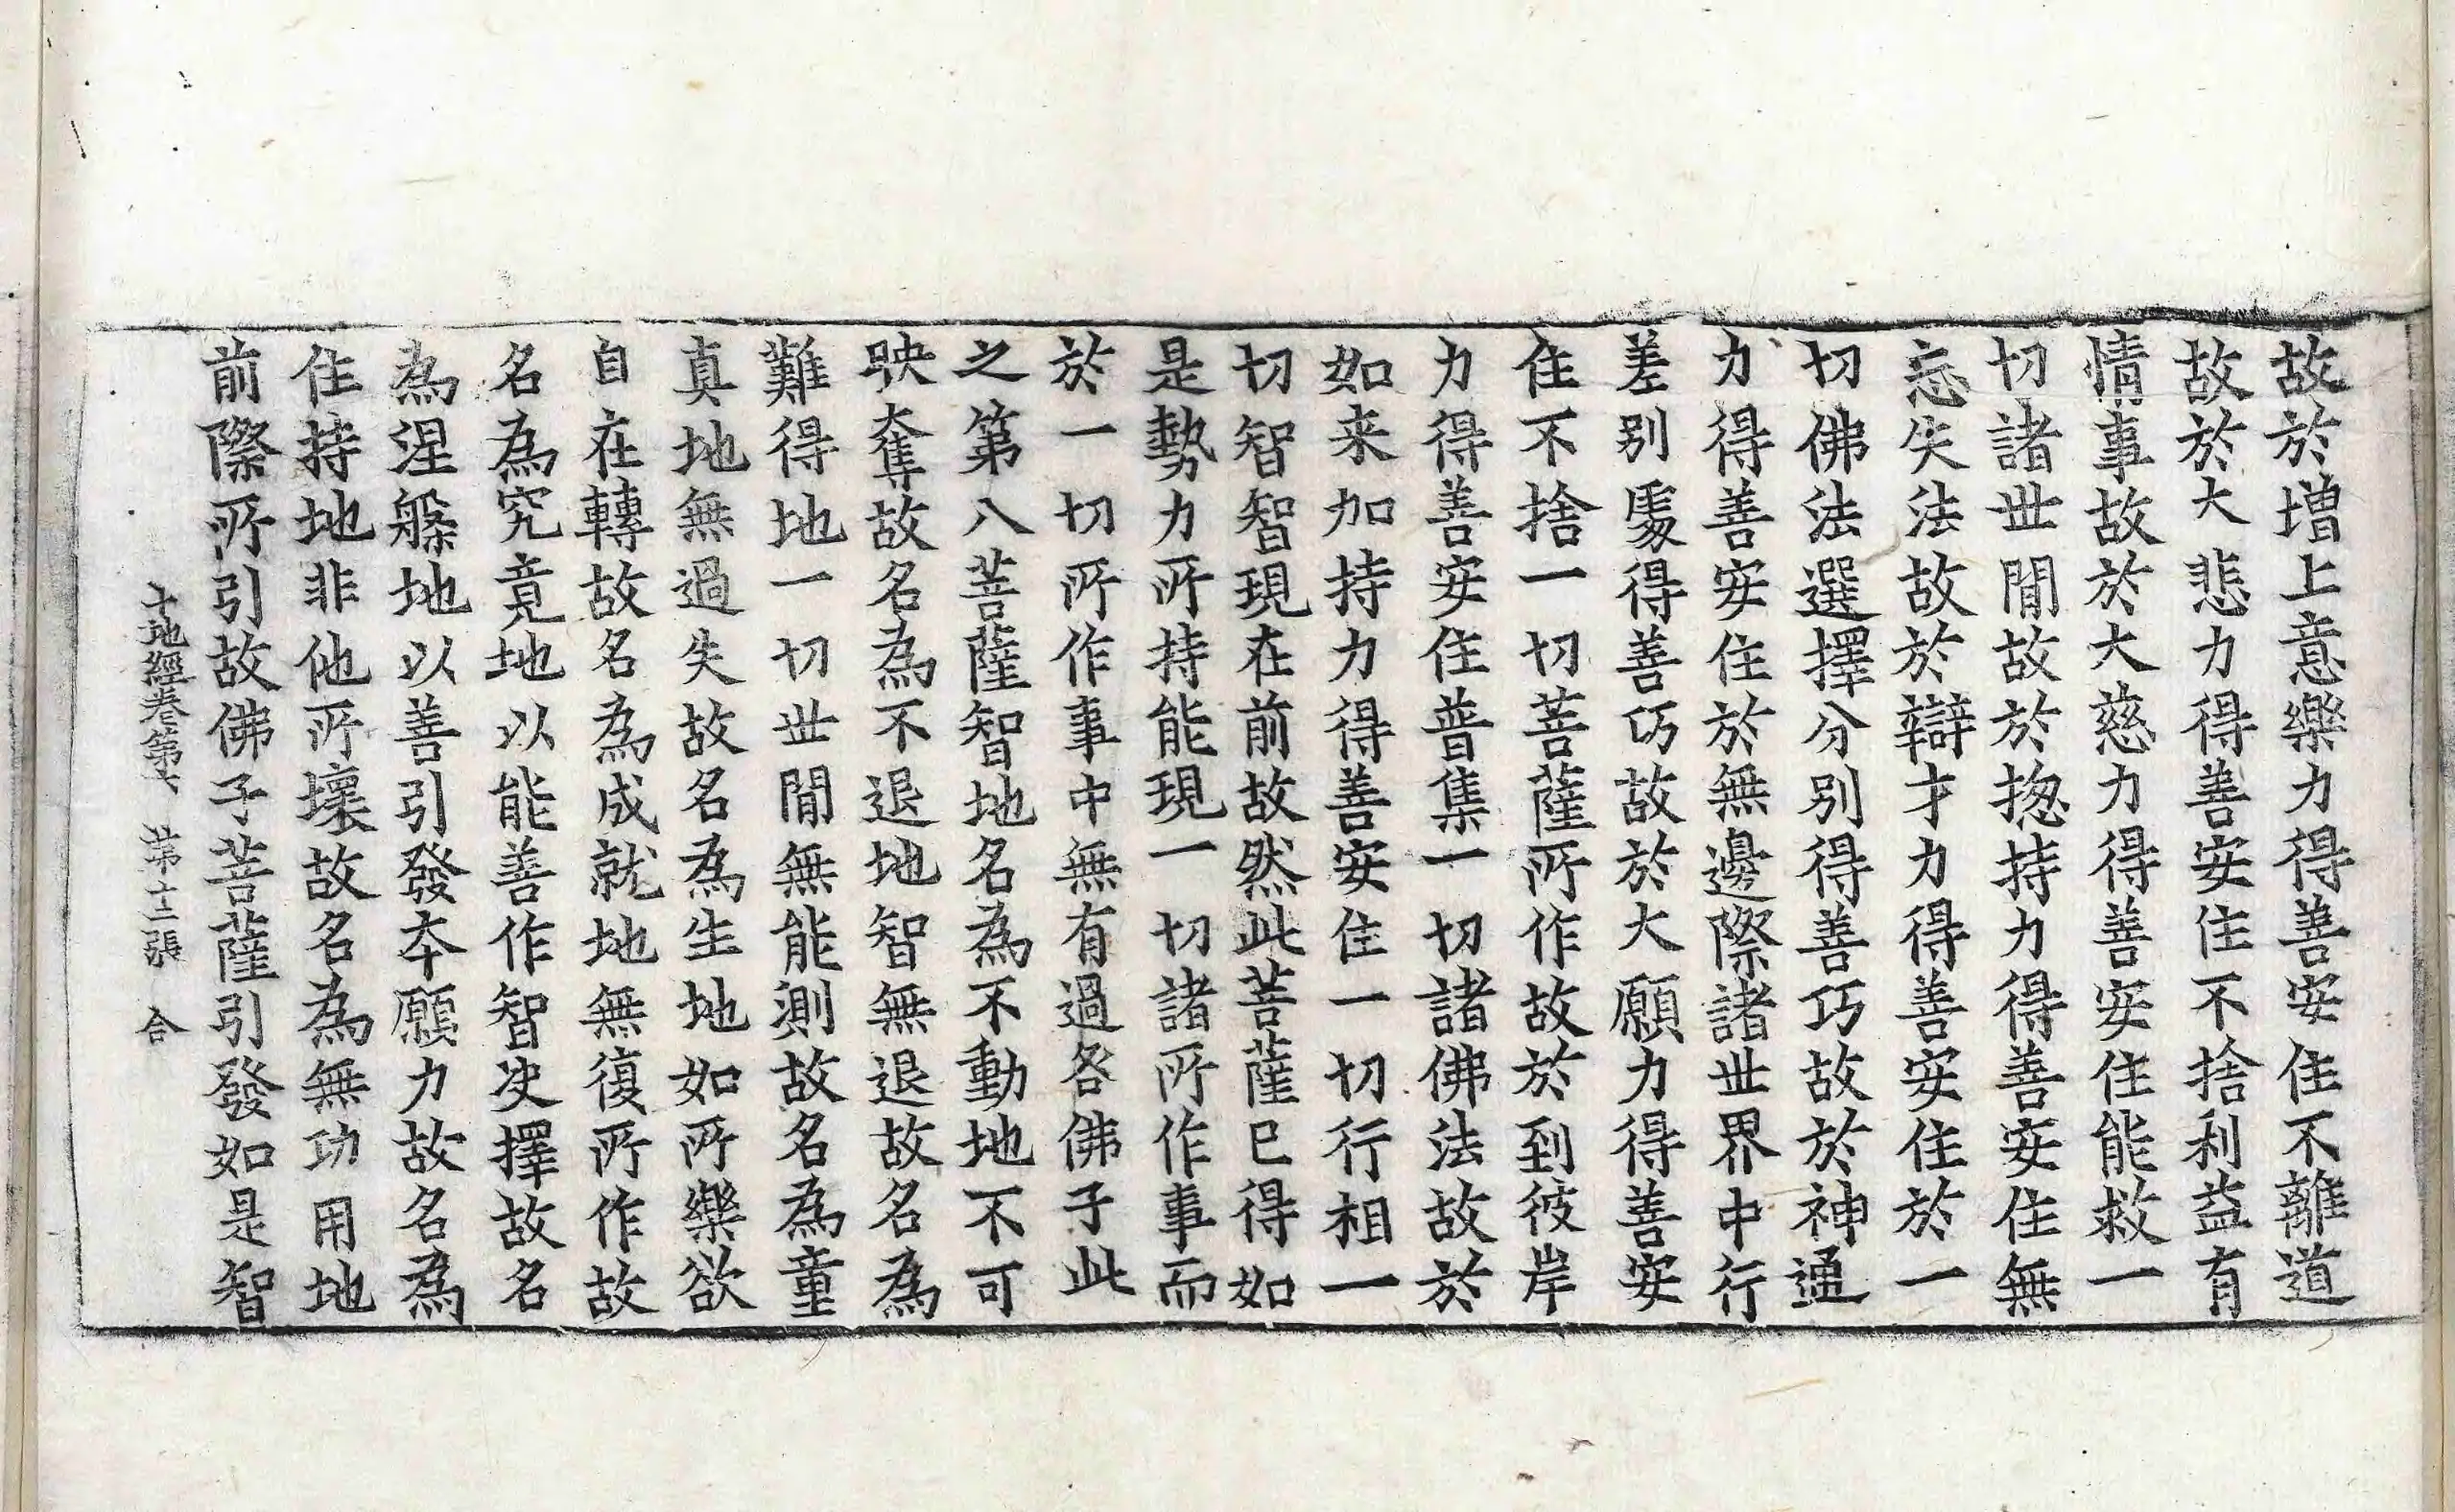 故於增上意樂力得善安住不離道
故於大悲力得善安住不捨利益有
情事故於大慈力得善安住能救一
切諸世間故於揔持力得善安住無
忘失法故於辯才力得善安住於一
切佛法選擇分別得善巧故於神通
力得善安住於無邊際諸世界中行
差別處得善巧故於大願力得善安
住不捨一切菩薩所作故於到彼岸
力得善安住普集一切諸佛法故於
如来加持力得善安住一切行相一
切智智現在前故然此菩薩已得如
是勢力所持能現一切諸所作事而
於一切所作事中無有過咎佛子此
之第八菩薩智地名為不動地不可
映奪故名為不退地智無退故名為
難得地一切世間無能測故名為童
真地無過失故名為生地如所樂欲
自在轉故名為成就地無復所作故
名為究竟地以能善作智决擇故名
為涅槃地以善引發本願力故名為
住持地非他所壞故名為無功用地
前際所引故佛子菩薩引發如是智
十地經卷第六 第十二張 合